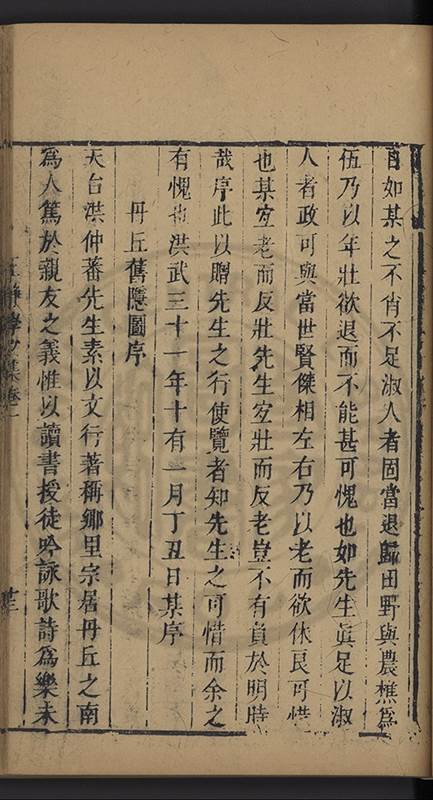 自如某之不肖不足淑人者固當退歸田野與農樵爲
伍乃以年壯欲退而不能甚可愧也如先生眞足以淑
人者政可與當世賢傑相左右乃以老而欲休良可惜
也某宜老而反壯先生宜壯而反老豈不有負於明時
哉序此以贈先生之行使覽者知先生之可惜而余之
有愧也洪武三十一年十有一月丁丑日某序
丹丘舊隱圖序
天台洪仲蕃先生素以文行著稱鄉里宗居丹丘之南
爲人篤於親友之義惟以讀書授徒吟詠歌詩爲樂未
王靜學文集卷二